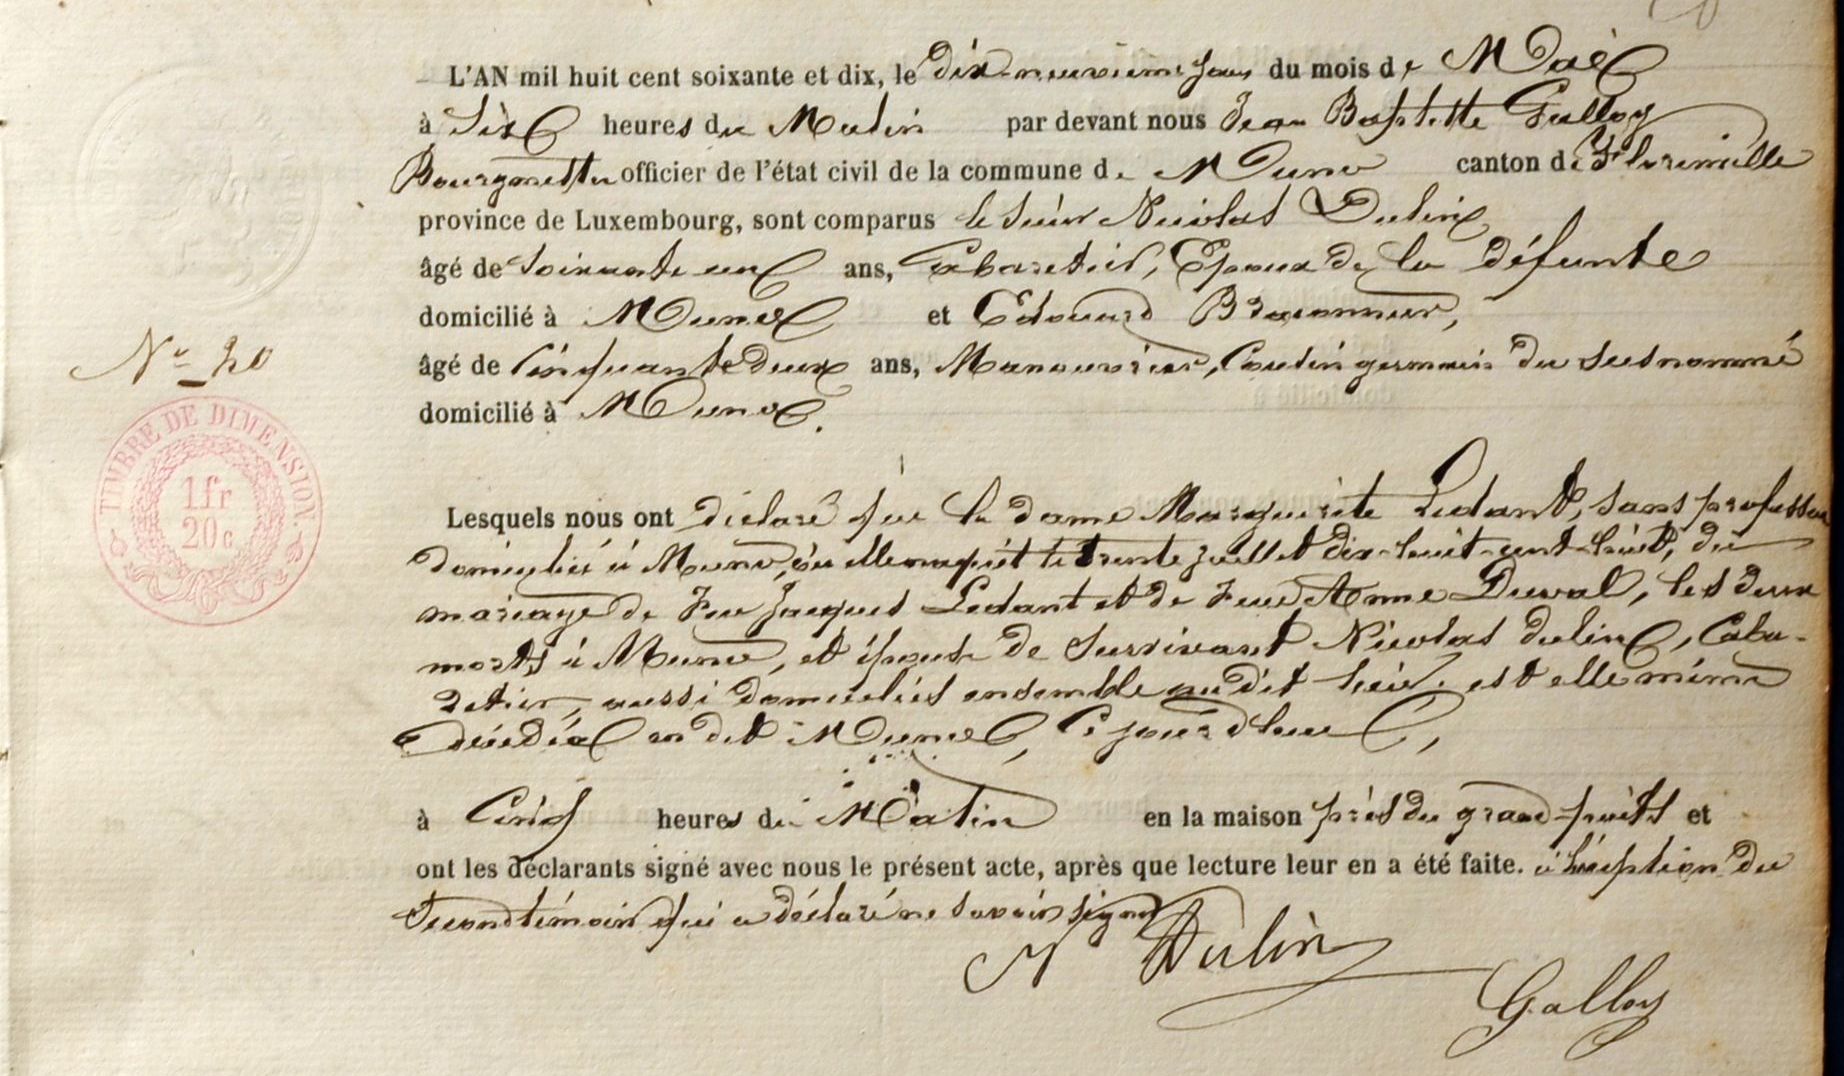 L'AN mil huit cent soixante et dix, le dix-neuvième jour du mois de Mai
à Six heures du Matin par devant nous Jean Baptiste Galloy
Bourgmestre officier de l'état civil de la commune de Muno canton de Florenville
province de Luxembourg, sont comparus le Sieur Nicolas Dulin
âgé de Soixante un ans, Cabaretier, Epoux de la défunte
domicilié à Muno et Edouard Braconnier,
âgé de Cinquante deux ans, Manouvrier, Cousin germain du susnommé
N° 20
domicilié à Muno.
TIMBRE DE DIMENSION.
1fr
20c
Lesquels nous ont déclaré que la dame Marguerite Ledant, sans profession
domiciliée à Muno, où elle naquit le trente juillet dix-huit-cent-huit, du
mariage de Feu Jacques Ledant et de Feue Anne Duval, les deux
morts à Muno, et épouse de Survivant Nicolas Dulin, Caba-
retier, aussi domiciliés ensemble au dit lieu. est elle même
décédée au dit Muno, ce jourd'hui,
à Cinq heures du Matin en la maison près du grand-puits et
ont les déclarants signé avec nous le présent acte, après que lecture leur en a été faite. à l'éxception du
Second témoin qui a déclaré ne savoir signer
N Dulin
Galloy